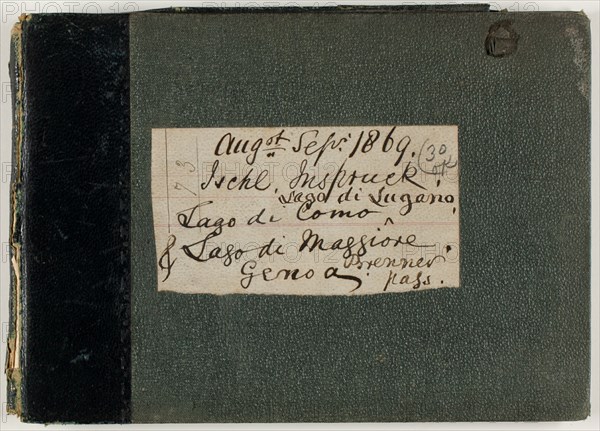 Augst Sepr. 1869. (30 OK)
73
Ischl. Inspruck.
Lago di Lugano.
Lago di Como
& Lago di Maggiore.
Genoa Brenner
pass.